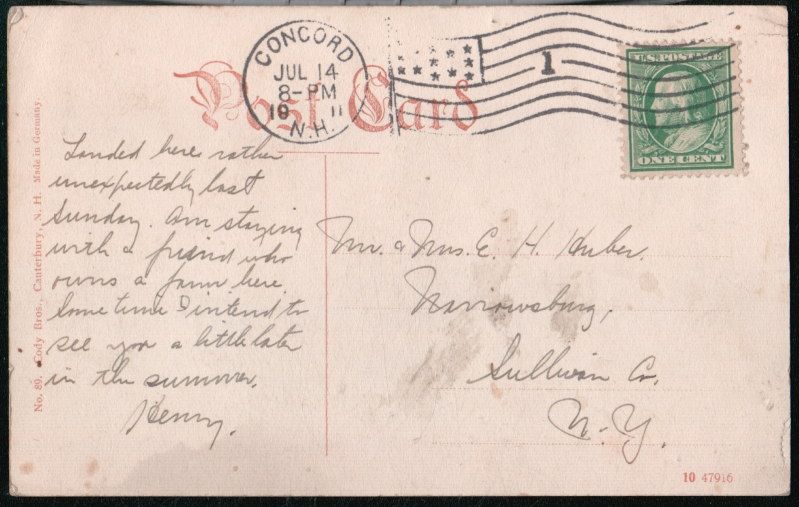 CONCORD
JUL 14
8-PM
19 11
N.H.
1
U.S. POSTAGE
ONE CENT
Post Card
No. 89. Cody Bros., Canterbury, N. H. Made in Germany.
Landed here rather
unexpectedly last
Sunday. Am staying
with a friend who
owns a farm here.
Some time I intend to
see you a little later
in the summer.
Henry.
Mr. & Mrs. E. H. Huber.
Narrowsburg,
Sullivan Co.
N. Y.
10 47916